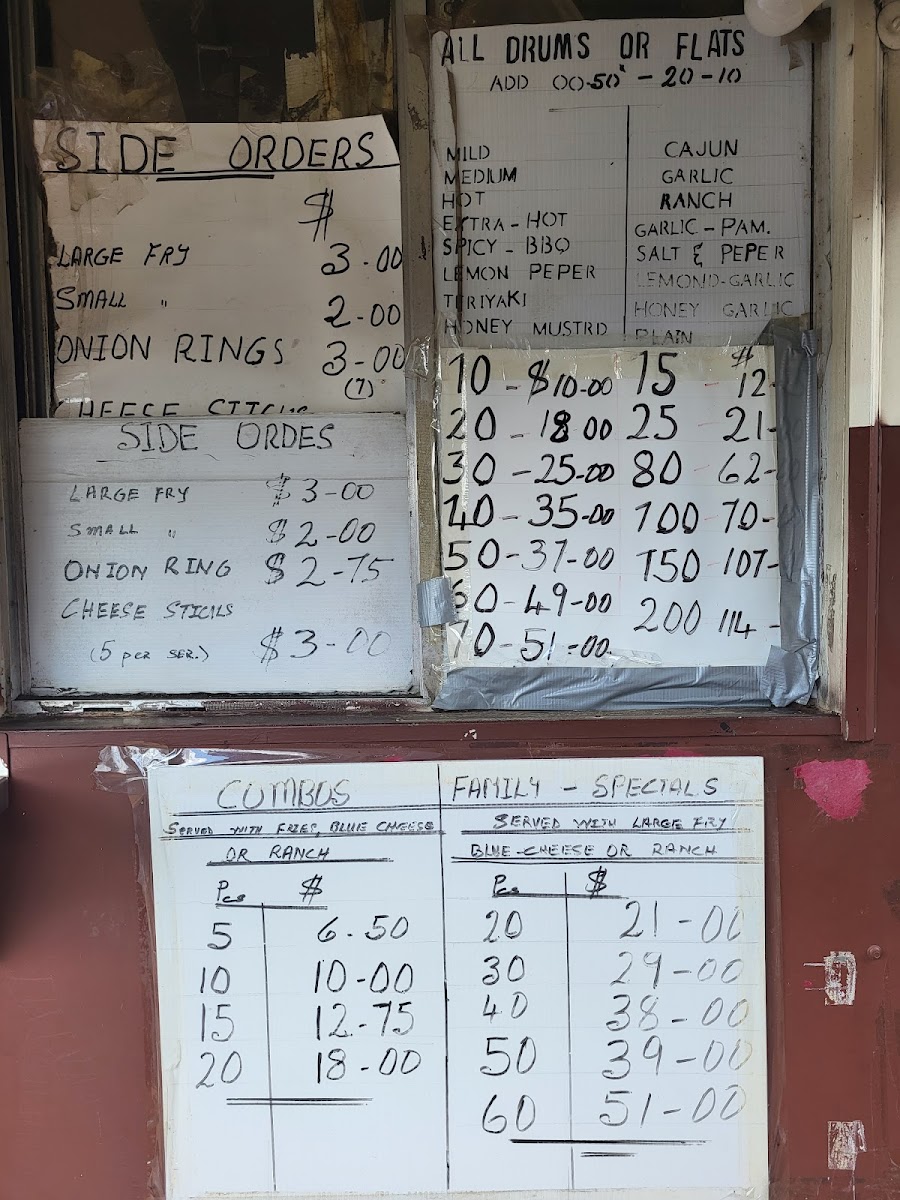 SIDE ORDERS
$
LARGE FRY 3-00
SMALL " 2-00
ONION RINGS 3-00
(7)
CHEESE STICKS
SIDE ORDES
LARGE FRY $3-00
SMALL " $2-00
ONION RING $2-75
CHEESE STICKS
(5 per SER.) $3-00
ALL DRUMS OR FLATS
ADD 00-50¢ - 20-10
MILD
MEDIUM
HOT
EXTRA-HOT
SPICY-BBQ
LEMON PEPER
TERIYAKI
HONEY MUSTRD
CAJUN
GARLIC
RANCH
GARLIC-PAM.
SALT & PEPER
LEMOND-GARLIC
HONEY GARLIC
PLAIN
10-$10-00 15 $12-
20-18 00 25 21-
30-25-00 80 62-
40-35-00 100 70-
50-37-00 150 107-
60-49-00 200 114-
70-51-00
COMBOS
SERVED WITH FRIES, BLUE CHEESE
OR RANCH
Pcs $
5 6.50
10 10-00
15 12-75
20 18-00
FAMILY - SPECIALS
SERVED WITH LARGE FRY
BLUE-CHEESE OR RANCH
Pcs $
20 21-00
30 29-00
40 38-00
50 39-00
60 51-00